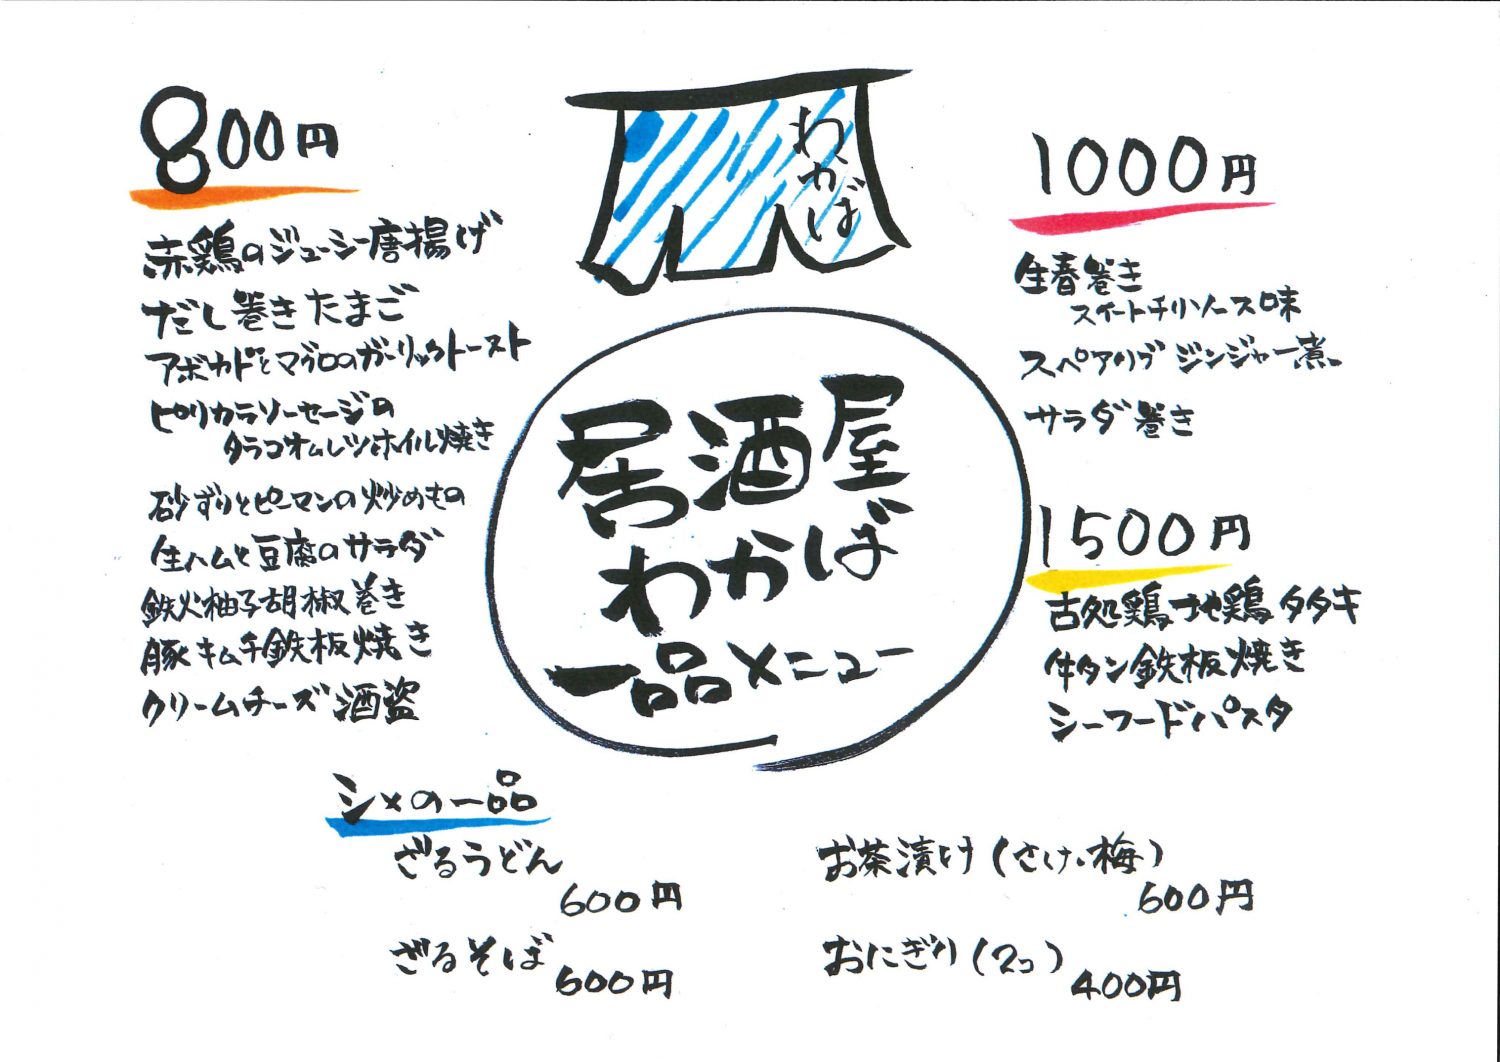 わかば
居酒屋
わかば
一品メニュー
800円
赤鶏のジューシー唐揚げ
だし巻きたまご
アボカドとマグロのガーリックトースト
ピリカラソーセージの
タラコオムレツホイル焼き
砂ずりとピーマンの炒めもの
生ハムと豆腐のサラダ
鉄火柚子胡椒巻き
豚キムチ鉄板焼き
クリームチーズ酒盗
1000円
生春巻き
スイートチリソース味
スペアリブジンジャー煮
サラダ巻き
1500円
古処鶏地鶏タタキ
牛タン鉄板焼き
シーフードパスタ
シメの一品
ざるうどん
600円
ざるそば
600円
お茶漬け(さけ・梅)
600円
おにぎり(2コ)
400円